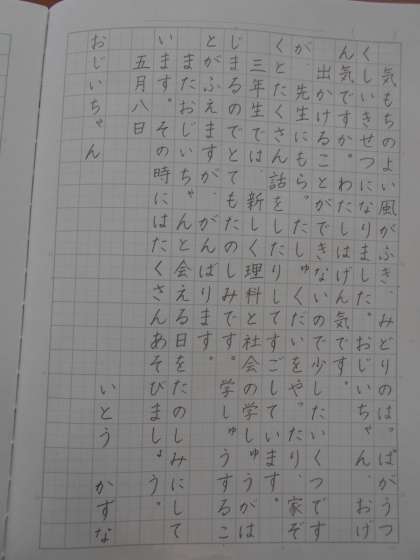 気もちのよい風がふき、みどりのはっぱがうつ
くしいきせつになりました。おじいちゃん、おげ
ん気ですか。わたしはげん気です。
出かけることができないので少したいくつです
が、先生にもらったしゅくだいをやったり、家ぞ
くとたくさん話をしたりしてすごしています。
三年生では、新しく理科と社会の学しゅうがは
じまるのでとてもたのしみです。学しゅうするこ
とがふえますが、がんばります。
またおじいちゃんと会える日をたのしみにして
います。その時にはたくさんあそびましょう。
五月八日
いとう かずな
おじいちゃん